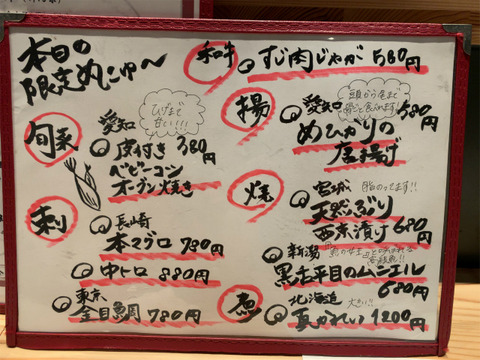 本日の
限定丸にゅ〜
旬菜
ひげまで
甘い!!!
愛知
皮付き 380円
ベビーコーン
オーブン焼き
刺
長崎
本マグロ 780円
中トロ 880円
東京
金目鯛 780円
和牛
すじ肉じゃが 580円
揚
頭から尾まで
食べれます!
愛知 580円
めひかりの
唐揚げ
焼
宮城 脂のってます!!
天然ぶり
西京漬け 680円
新潟
黒舌平目のムニエル
680円
魚
北海道 大きい!!
真がれい 1200円